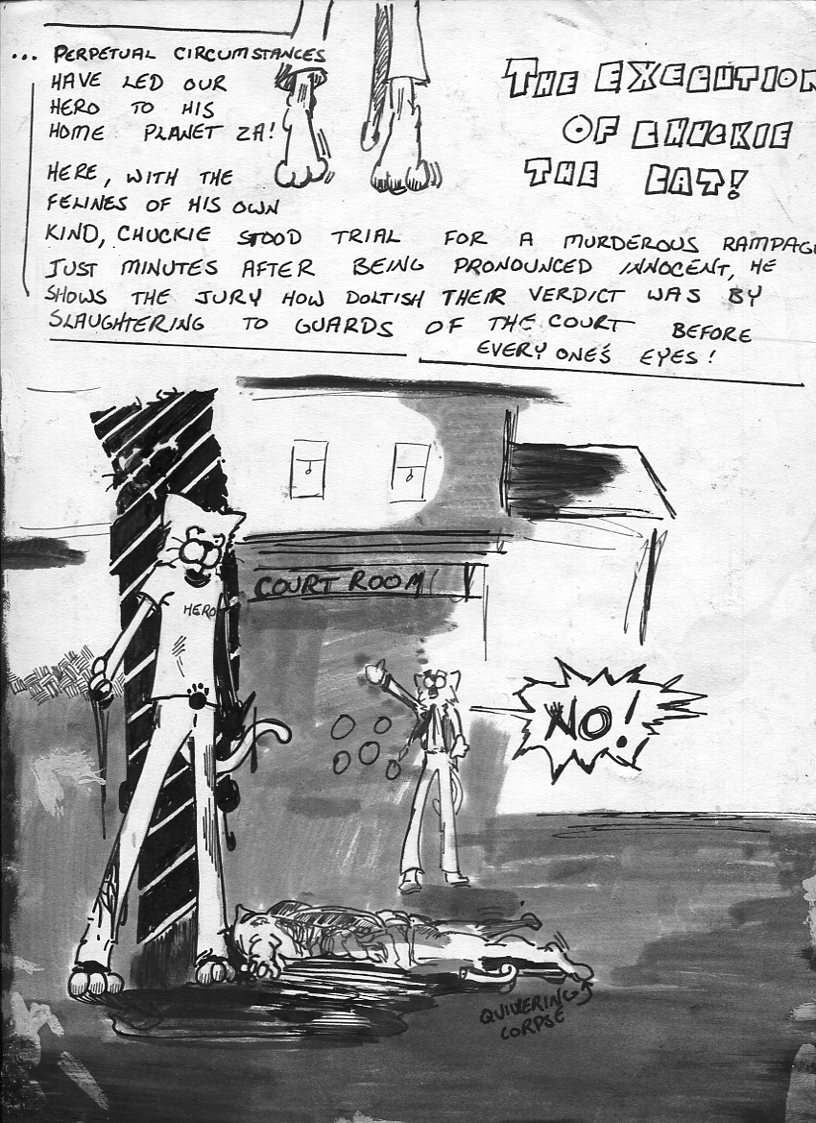 ... PERPETUAL CIRCUMSTANCES
HAVE LED OUR
HERO TO HIS
HOME PLANET ZA!
THE EXECUTION
OF CHUCKIE
THE CAT!
HERE, WITH THE
FELINES OF HIS OWN
KIND, CHUCKIE STOOD TRIAL FOR A MURDEROUS RAMPAGE
JUST MINUTES AFTER BEING PRONOUNCED INNOCENT, HE
SHOWS THE JURY HOW DOLTISH THEIR VERDICT WAS BY
SLAUGHTERING TO GUARDS OF THE COURT BEFORE
EVERY ONE'S EYES!
COURT ROOM
HERO
NO!
QUIVERING
CORPSE